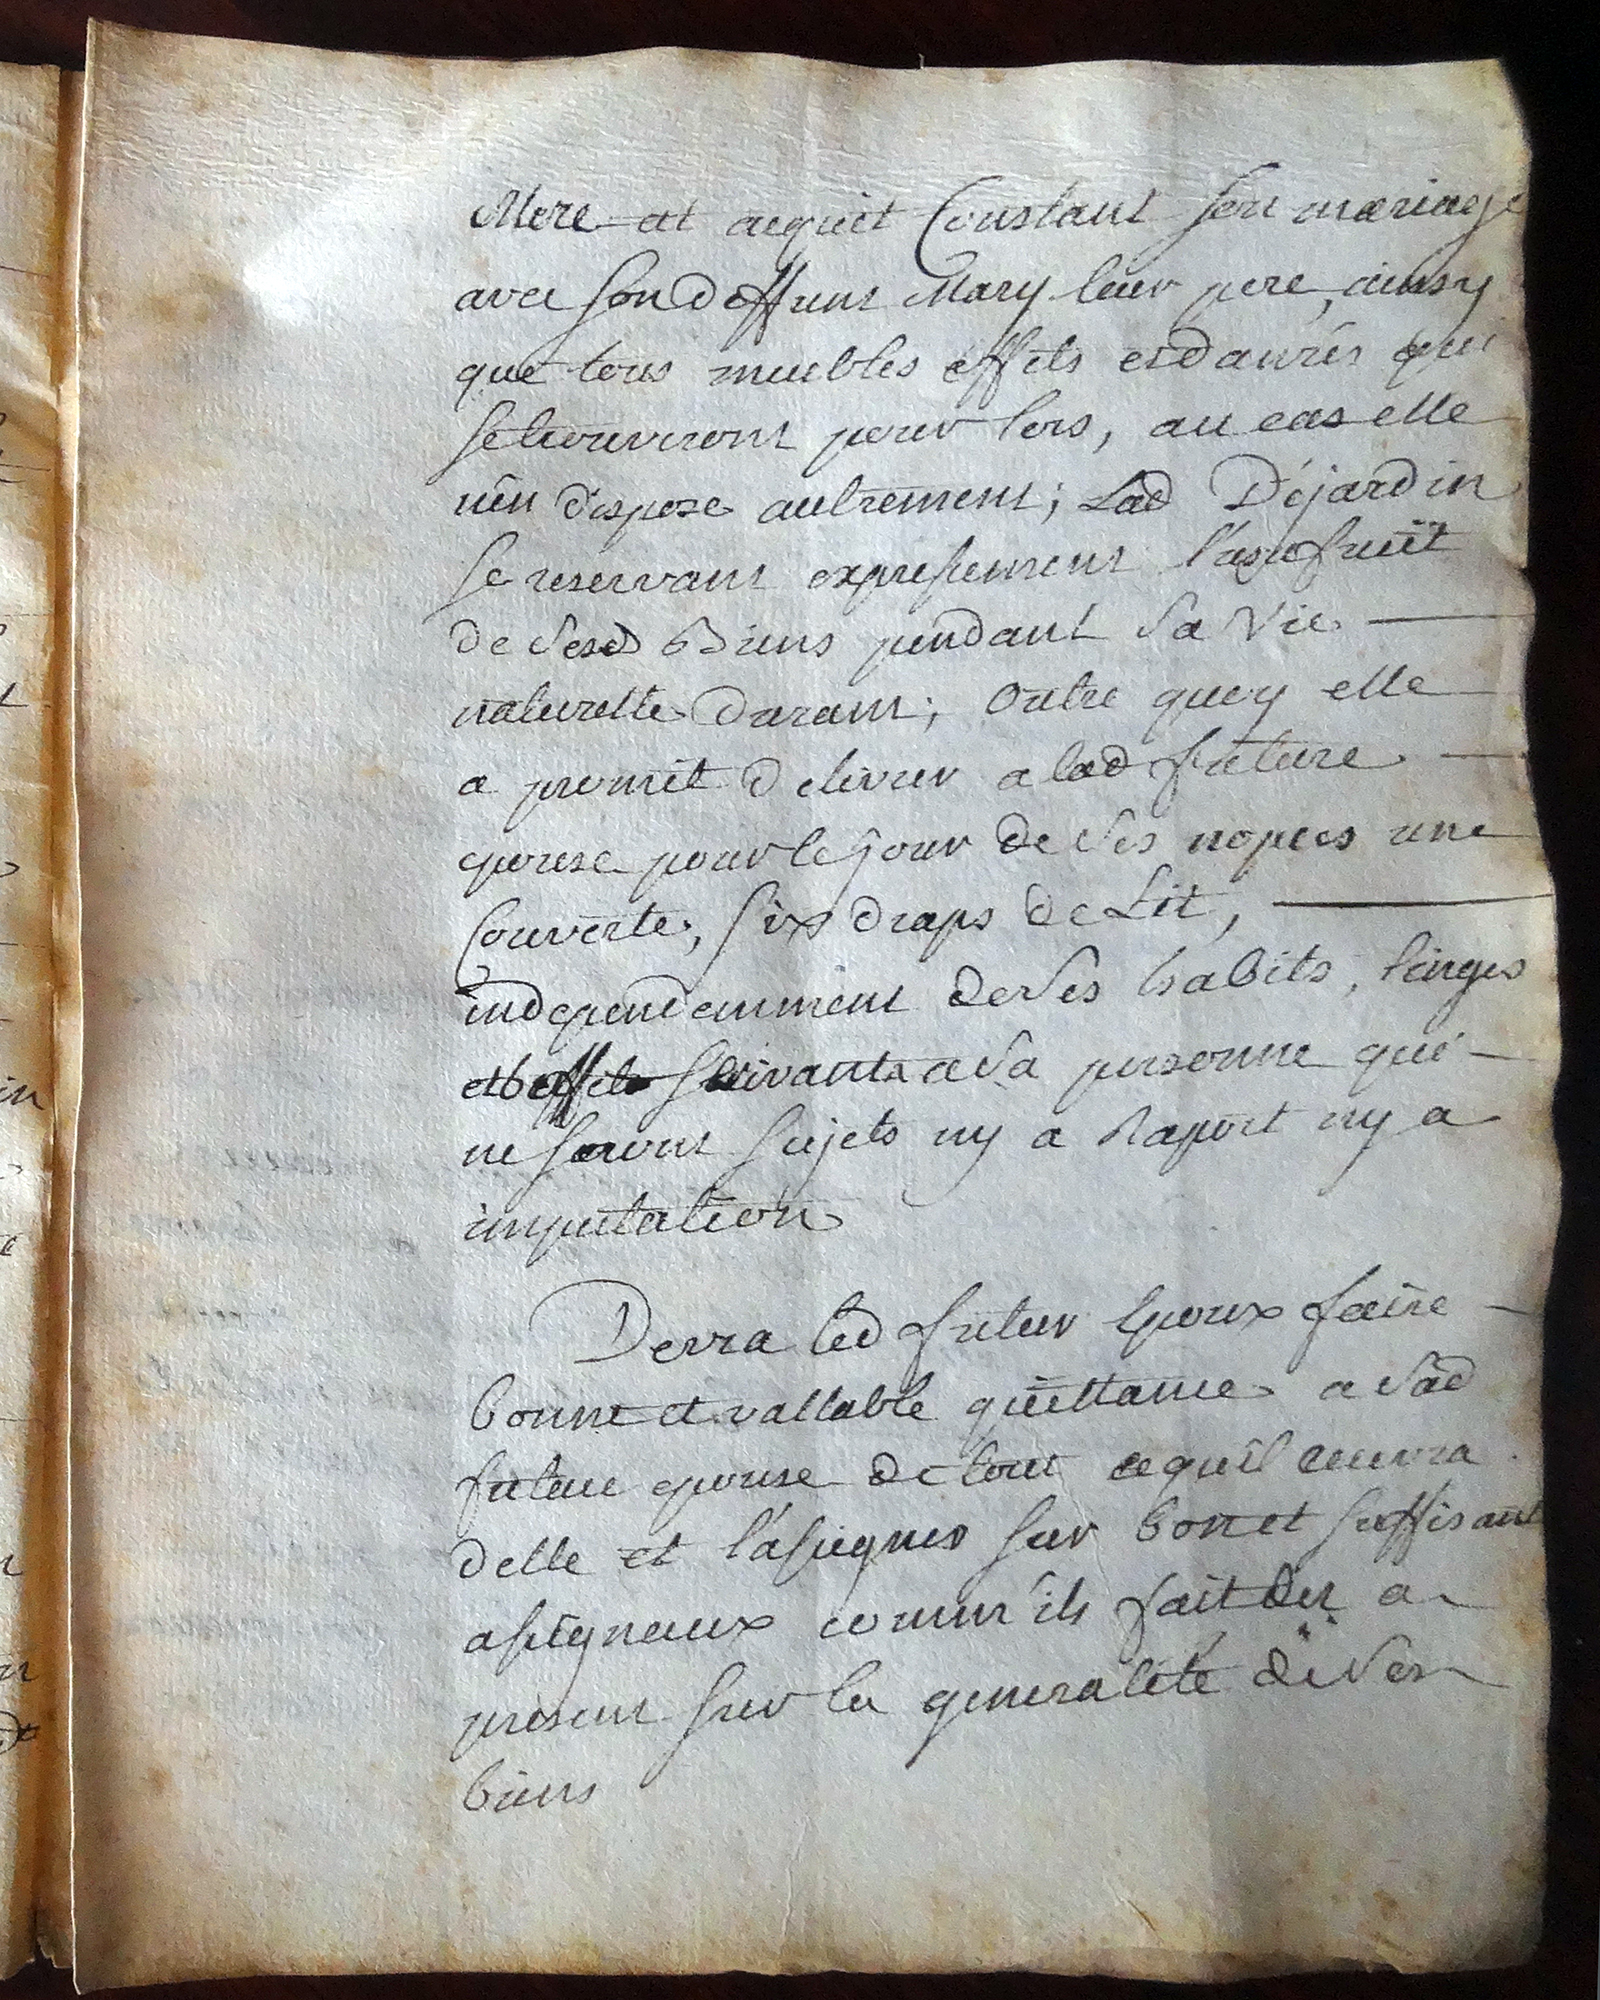 Mere at acquit Constant son mariage
avec son deffunt Mary leur pere, ainsy
que tous meubles effets et danrés qui
se trouvront pour lors, au cas elle
n'en dispose autrement; Lad Déjardin
se reservant expressement l'usufruit
de sesd Biens pendant sa vie
naturelle durant; Outre quoy elle
a promit delivrer a lad future
epouse pour le jour de ses nopces une
Couverte, six draps de Lit,
independemment de ses habits, linges
et effets servants a sa personne qui
ne seront sujets ny a Raport ny a
imputation
Devra led futur Epoux faire
bonne et vallable quittance a sad
future epouse de tout ce qu'il
delle et l'assigner sur bon et suffisant
assignaux comm'ils fait des a
present sur la generalité de ses
biens